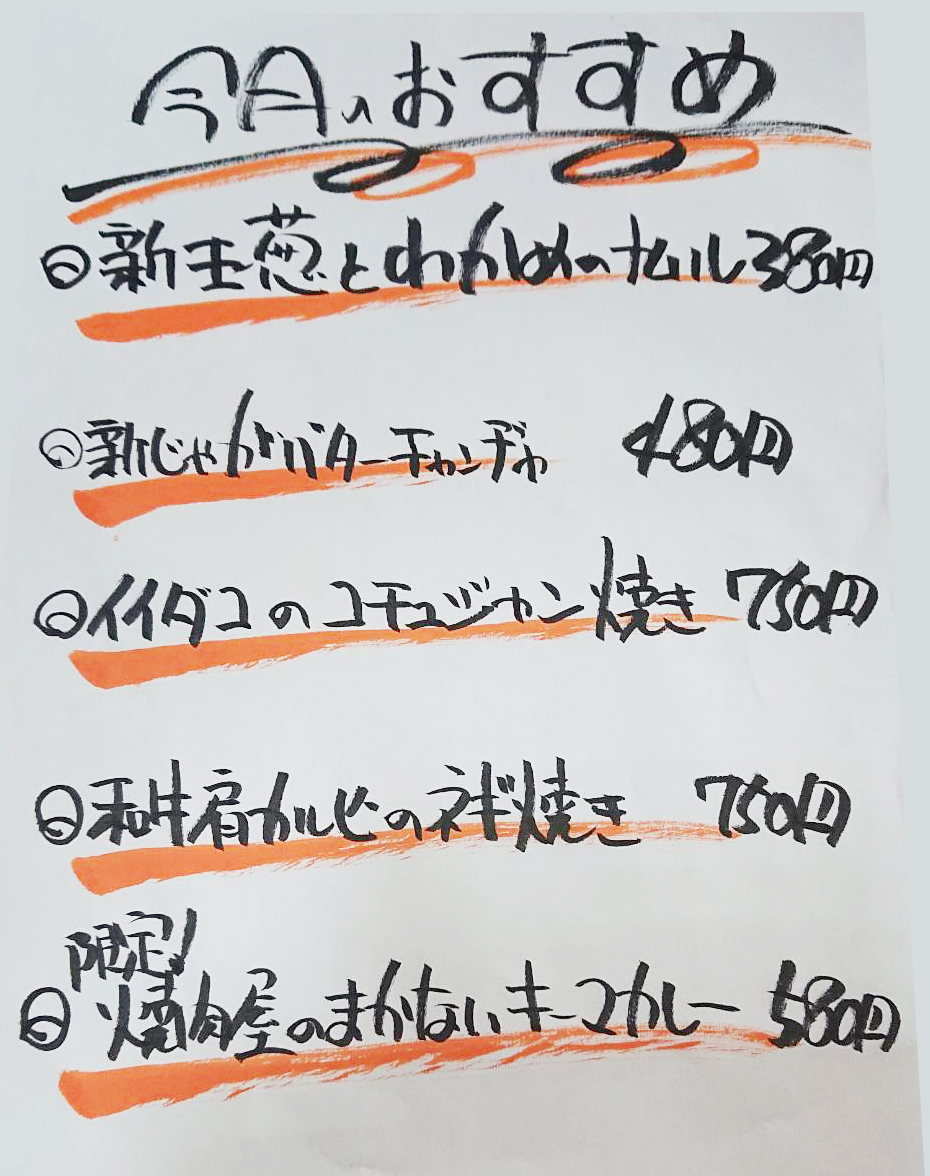 今月のおすすめ
◎新玉葱とわかめのナムル 380円
◎新じゃがバターチャンヂャ 480円
◎イイダコのコチュジャン焼き 750円
◎和牛肩カルビのネギ焼き 750円
限定!
◎焼肉屋のまかないキーマカレー 580円